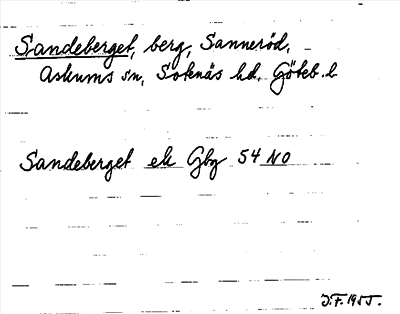 Sandeberget, berg, Sanneröd,
Askums sn, Sotenäs hd, Göteb. l
Sandeberget ek Gbg 54 NO
J.F. 1955.